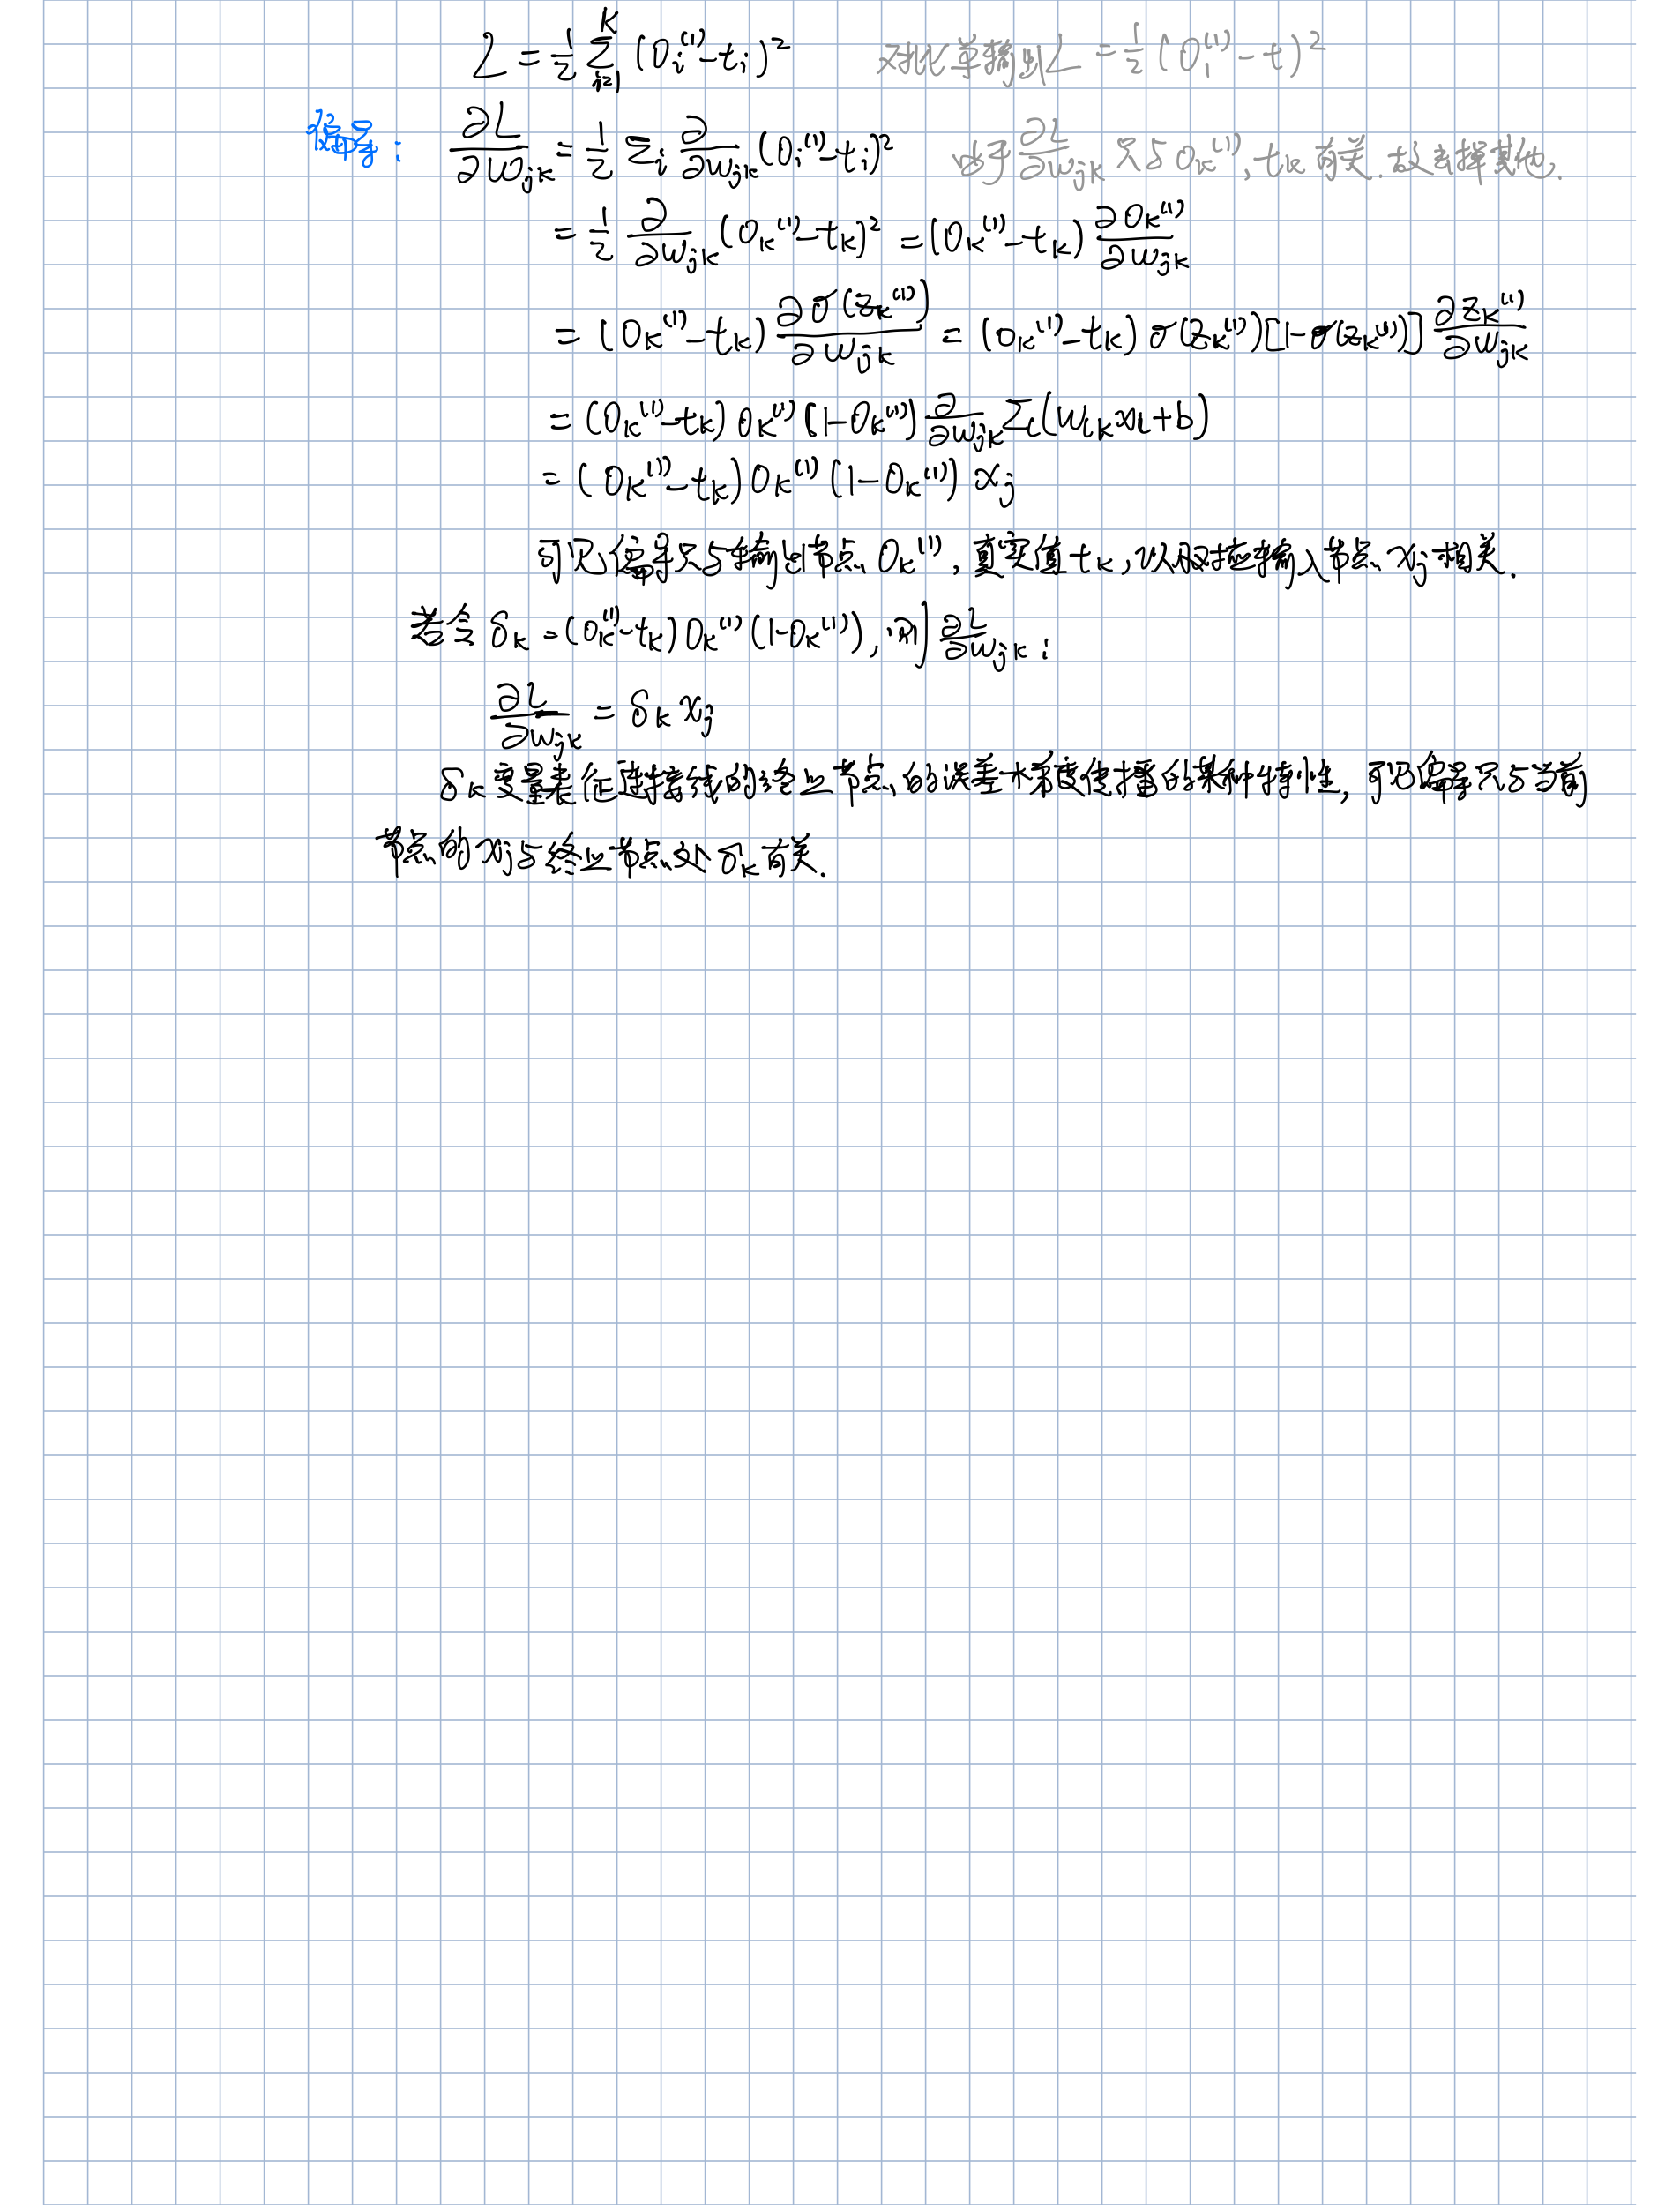 L = 1/2 Σ_{i=1}^{K} (O_i^{(1)} - t_i)^2 对比单输出 L = 1/2 (O_1^{(1)} - t)^2
偏导: ∂L/∂w_{jk} = 1/2 Σ_i ∂/∂w_{jk} (O_i^{(1)} - t_i)^2 由于 ∂L/∂w_{jk} 只与 O_k^{(1)}, t_k 有关. 故去掉其他.
= 1/2 ∂/∂w_{jk} (O_k^{(1)} - t_k)^2 = (O_k^{(1)} - t_k) ∂O_k^{(1)}/∂w_{jk}
= (O_k^{(1)} - t_k) ∂σ(z_k^{(1)})/∂w_{jk} = (O_k^{(1)} - t_k) σ(z_k^{(1)}) [1 - σ(z_k^{(1)})] ∂z_k^{(1)}/∂w_{jk}
= (O_k^{(1)} - t_k) O_k^{(1)} (1 - O_k^{(1)}) ∂/∂w_{jk} Σ_i (w_{ik} x_i + b)
= (O_k^{(1)} - t_k) O_k^{(1)} (1 - O_k^{(1)}) x_j
可见偏导只与输出节点 O_k^{(1)}, 真实值 t_k, 以及对应输入节点 x_j 相关.
若令 δ_k = (O_k^{(1)} - t_k) O_k^{(1)} (1 - O_k^{(1)}), 则 ∂L/∂w_{jk} :
∂L/∂w_{jk} = δ_k x_j
δ_k 变量表征连接线的终止节点的误差梯度传播的某种特性, 可见偏导只与当前
节点的 x_j 与终止节点处 δ_k 有关.